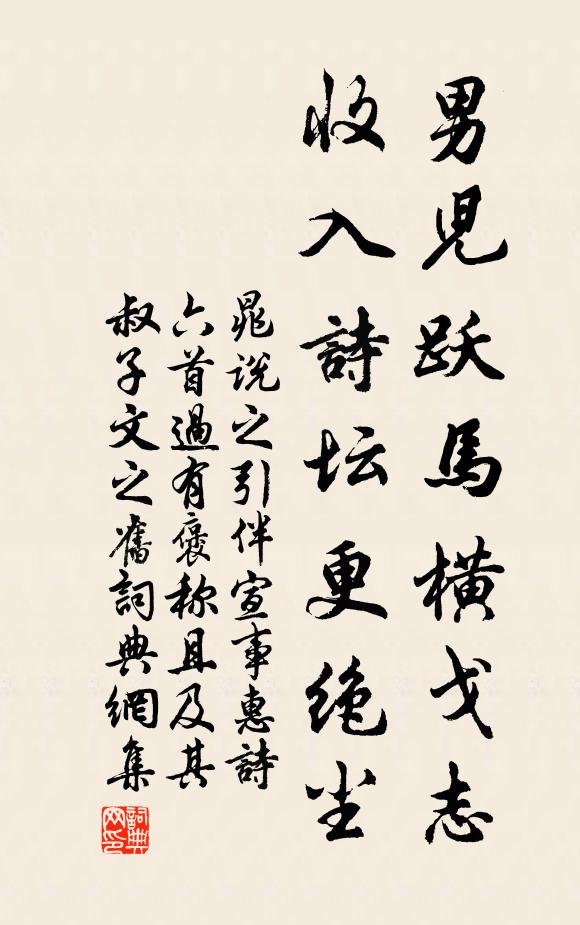 男児跃馬横戈志
收入詩坛更绝尘
晁说之引伴宣事惠詩
六首過有褒称且及其
叔子文之舊詞典網集
詞典网印